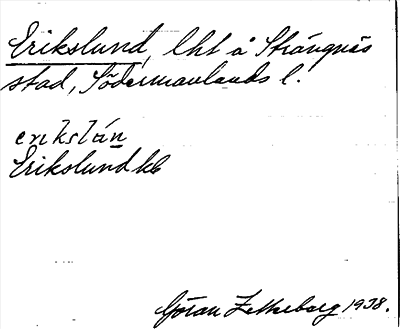 Erikslund, lht å Strängnäs
stad, Södermanlands l.
erikslún
Erikslund kb
Göran Zetherborg 1938.